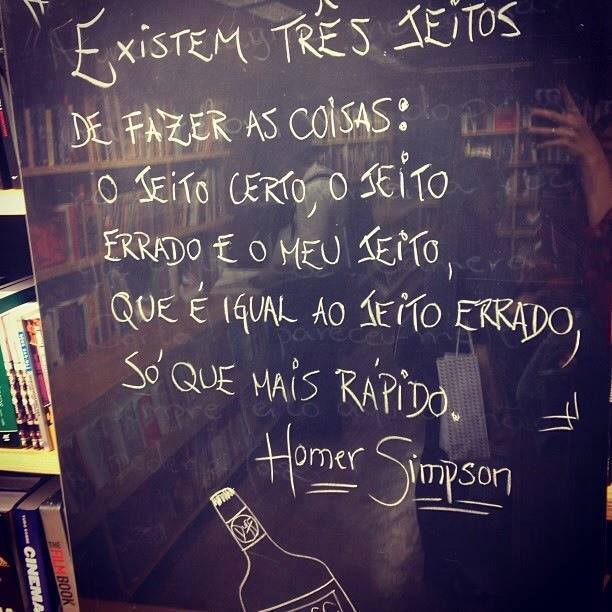 EXISTEM TRÊS JEITOS
DE FAZER AS COISAS:
O JEITO CERTO, O JEITO
ERRADO E O MEU JEITO,
QUE É IGUAL AO JEITO ERRADO,
SÓ QUE MAIS RÁPIDO.
Homer Simpson
CINEMA
THE FILM BOOK